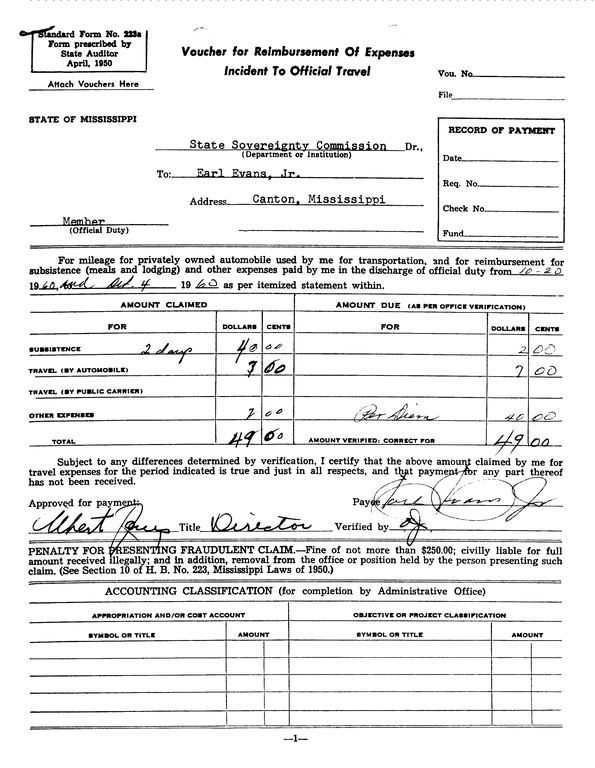 Standard Form No. 223a
Form prescribed by
State Auditor
April, 1950
Attach Vouchers Here
Voucher for Reimbursement Of Expenses
Incident To Official Travel
Vou. No.
File
STATE OF MISSISSIPPI
State Sovereignty Commission Dr.,
(Department or Institution)
To: Earl Evans, Jr.
Address Canton, Mississippi
Member
(Official Duty)
RECORD OF PAYMENT
Date
Req. No.
Check No.
Fund
For mileage for privately owned automobile used by me for transportation, and for reimbursement for
subsistence (meals and lodging) and other expenses paid by me in the discharge of official duty from 10-20
1960, and 4 1960 as per itemized statement within.
AMOUNT CLAIMED AMOUNT DUE (AS PER OFFICE VERIFICATION)
FOR DOLLARS CENTS FOR DOLLARS CENTS
SUBSISTENCE 2 days 40 00 2 00
TRAVEL (BY AUTOMOBILE) 7 00 7 00
TRAVEL (BY PUBLIC CARRIER)
OTHER EXPENSES 2 00 Per Diem 40 00
TOTAL 49 00 AMOUNT VERIFIED: CORRECT FOR 49 00
Subject to any differences determined by verification, I certify that the above amount claimed by me for
travel expenses for the period indicated is true and just in all respects, and that payment for any part thereof
has not been received.
Approved for payment: Payee Earl Evans Jr
Albert Jones Title Director Verified by
PENALTY FOR PRESENTING FRAUDULENT CLAIM.—Fine of not more than $250.00; civilly liable for full
amount received illegally; and in addition, removal from the office or position held by the person presenting such
claim. (See Section 10 of H. B. No. 223, Mississippi Laws of 1950.)
ACCOUNTING CLASSIFICATION (for completion by Administrative Office)
APPROPRIATION AND/OR COST ACCOUNT OBJECTIVE OR PROJECT CLASSIFICATION
SYMBOL OR TITLE AMOUNT SYMBOL OR TITLE AMOUNT
—1—